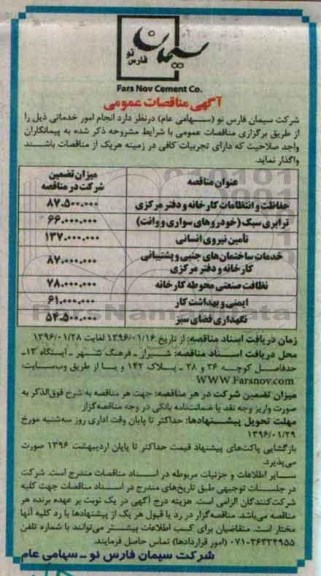 سیمان
فارس نو
Fars Nov Cement Co.
آگهی مناقصات عمومی
شرکت سیمان فارس نو (سهامی عام) درنظر دارد انجام امور خدماتی ذیل را
از طریق برگزاری مناقصات عمومی با شرایط مشروحه ذکر شده به پیمانکاران
واجد صلاحیت که دارای تجربیات کافی در زمینه هریک از مناقصات باشند
واگذار نماید.
عنوان مناقصه میزان تضمین شرکت در مناقصه
حفاظت و انتظامات کارخانه و دفتر مرکزی ۸۷.۵۰۰.۰۰۰
ترابری سبک (خودروهای سواری و وانت) ۶۶.۰۰۰.۰۰۰
تأمین نیروی انسانی ۱۳۷.۰۰۰.۰۰۰
خدمات ساختمان‌های جنبی و پشتیبانی کارخانه و دفتر مرکزی ۸۷.۰۰۰.۰۰۰
نظافت صنعتی محوطه کارخانه ۷۸.۰۰۰.۰۰۰
ایمنی و بهداشت کار ۶۱.۰۰۰.۰۰۰
نگهداری فضای سبز ۵۴.۵۰۰.۰۰۰
زمان دریافت اسناد مناقصه: از تاریخ ۱۳۹۶/۰۱/۱۶ لغایت ۱۳۹۶/۰۱/۲۸
محل دریافت اسناد مناقصه: شیراز ـ فرهنگ شهر ـ ایستگاه ۱۳ـ
حدفاصل کوچه ۲۶ و ۲۸ ـ پلاک ۱۴۲ و یا از طریق وب‌سایت:
WWW.Farsnov.com
میزان تضمین شرکت در هر مناقصه: جهت هر مناقصه به شرح فوق‌الذکر به
صورت واریز وجه نقد یا ضمانتنامه بانکی در وجه مناقصه‌گزار
مهلت تحویل پیشنهادها: حداکثر تا پایان وقت اداری روز سه‌شنبه مورخ
۱۳۹۶/۰۱/۲۹
بازگشایی پاکت‌های پیشنهاد قیمت حداکثر تا پایان اردیبهشت ۱۳۹۶ صورت
می‌پذیرد.
سایر اطلاعات و جزئیات مربوطه در اسناد مناقصات مندرج است. شرکت
در جلسات توجیهی طبق تاریخ‌های مندرج در اسناد مناقصات جهت کلیه
شرکت‌کنندگان الزامی است. هزینه درج آگهی در یک نوبت بر عهده برنده هر
مناقصه می‌باشد. مناقصه‌گزار در رد یا قبول هر یک از پیشنهادها یا رد کلیه آنها
مختار است. متقاضیان برای کسب اطلاعات بیشتر می‌توانند با شماره تلفن
۰۷۱-۳۶۳۳۴۹۵۵ (امور قراردادها) تماس حاصل فرمایند.
شرکت سیمان فارس نو ـ سهامی عام